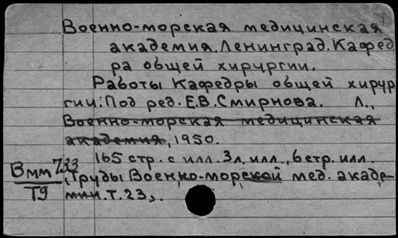 Военно-морская медицинская
академия. Ленинград. Кафед
ра общей хирургии.
Работы Кафедры общей хирур
гии: Под ред. Е.В. Смирнова. Л.,
Военно-морская медицинская
академия, 1950.
165 стр. с илл. 3 л. илл., 6 стр. илл.
Вмм 733
Т9
(Труды Военно-морской мед. акаде-
мии. Т. 23).